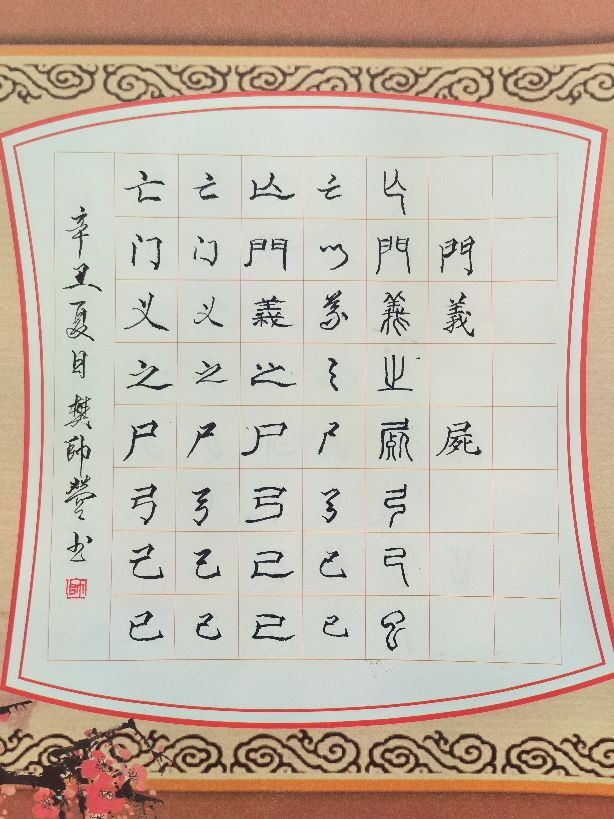 亡 亡 亡 亡 亡
门 门 門 门 門 門
义 义 義 义 義 義
之 之 之 之 之
尸 尸 尸 尸 屍 屍
弓 弓 弓 弓 弓
己 己 己 己 己
已 已 已 已 已
辛丑夏月樊帅营书
帥